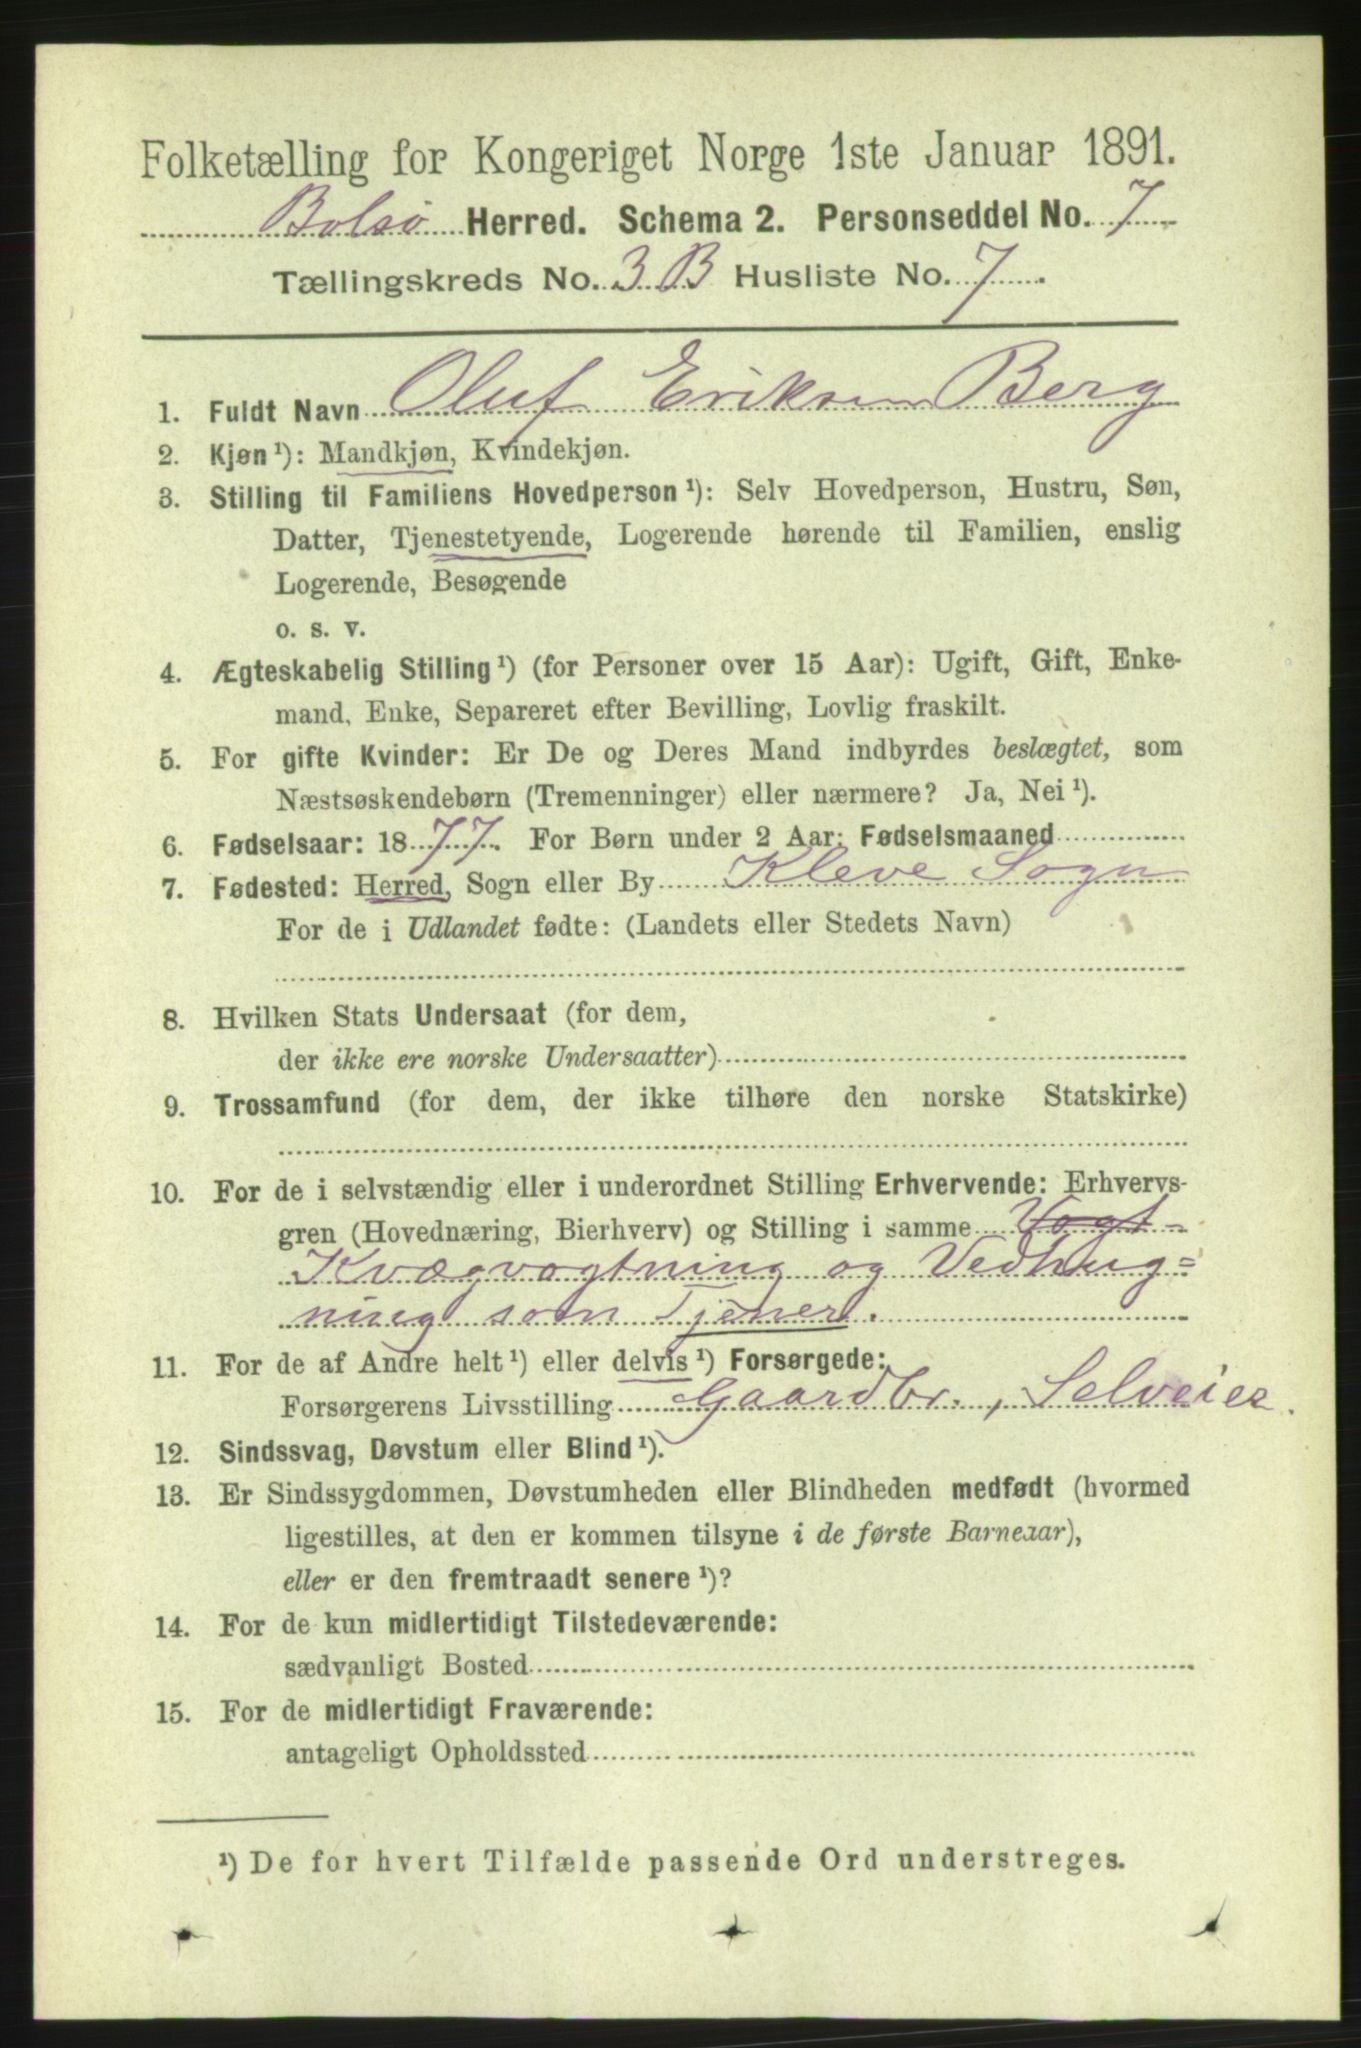 Folketælling for Kongeriget Norge 1ste Januar 1891.
Bolsø Herred. Schema 2. Personseddel No. 7
Tællingskreds No. 3 B Husliste No. 7.
1. Fuldt Navn Oluf Eriksen Berg
2. Kjøn¹): Mandkjøn, Kvindekjøn.
3. Stilling til Familiens Hovedperson¹): Selv Hovedperson, Hustru, Søn,
Datter, Tjenestetyende, Logerende hørende til Familien, enslig
Logerende, Besøgende
o. s. v.
4. Ægteskabelig Stilling¹) (for Personer over 15 Aar): Ugift, Gift, Enke-
mand, Enke, Separeret efter Bevilling, Lovlig fraskilt.
5. For gifte Kvinder: Er De og Deres Mand indbyrdes beslægtet, som
Næstsøskendebørn (Tremenninger) eller nærmere? Ja, Nei¹).
6. Fødselsaar: 1877. For Børn under 2 Aar: Fødselsmaaned
7. Fødested: Herred, Sogn eller By Kleve Sogn
For de i Udlandet fødte: (Landets eller Stedets Navn)
8. Hvilken Stats Undersaat (for dem,
der ikke ere norske Undersaatter)
9. Trossamfund (for dem, der ikke tilhøre den norske Statskirke)
10. For de i selvstændig eller i underordnet Stilling Erhvervende: Erhvervs-
gren (Hovednæring, Bierhverv) og Stilling i samme Vogt-
Kvægvogtning og Vedhug=
ning som Tjener.
11. For de af Andre helt¹) eller delvis¹) Forsørgede:
Forsørgerens Livsstilling Gaardbr., Selveier.
12. Sindssvag, Døvstum eller Blind¹).
13. Er Sindssygdommen, Døvstumheden eller Blindheden medfødt (hvormed
ligestilles, at den er kommen tilsyne i de første Barneaar),
eller er den fremtraadt senere¹)?
14. For de kun midlertidigt Tilstedeværende:
sædvanligt Bosted
15. For de midlertidigt Fraværende:
antageligt Opholdssted
¹) De for hvert Tilfælde passende Ord understreges.